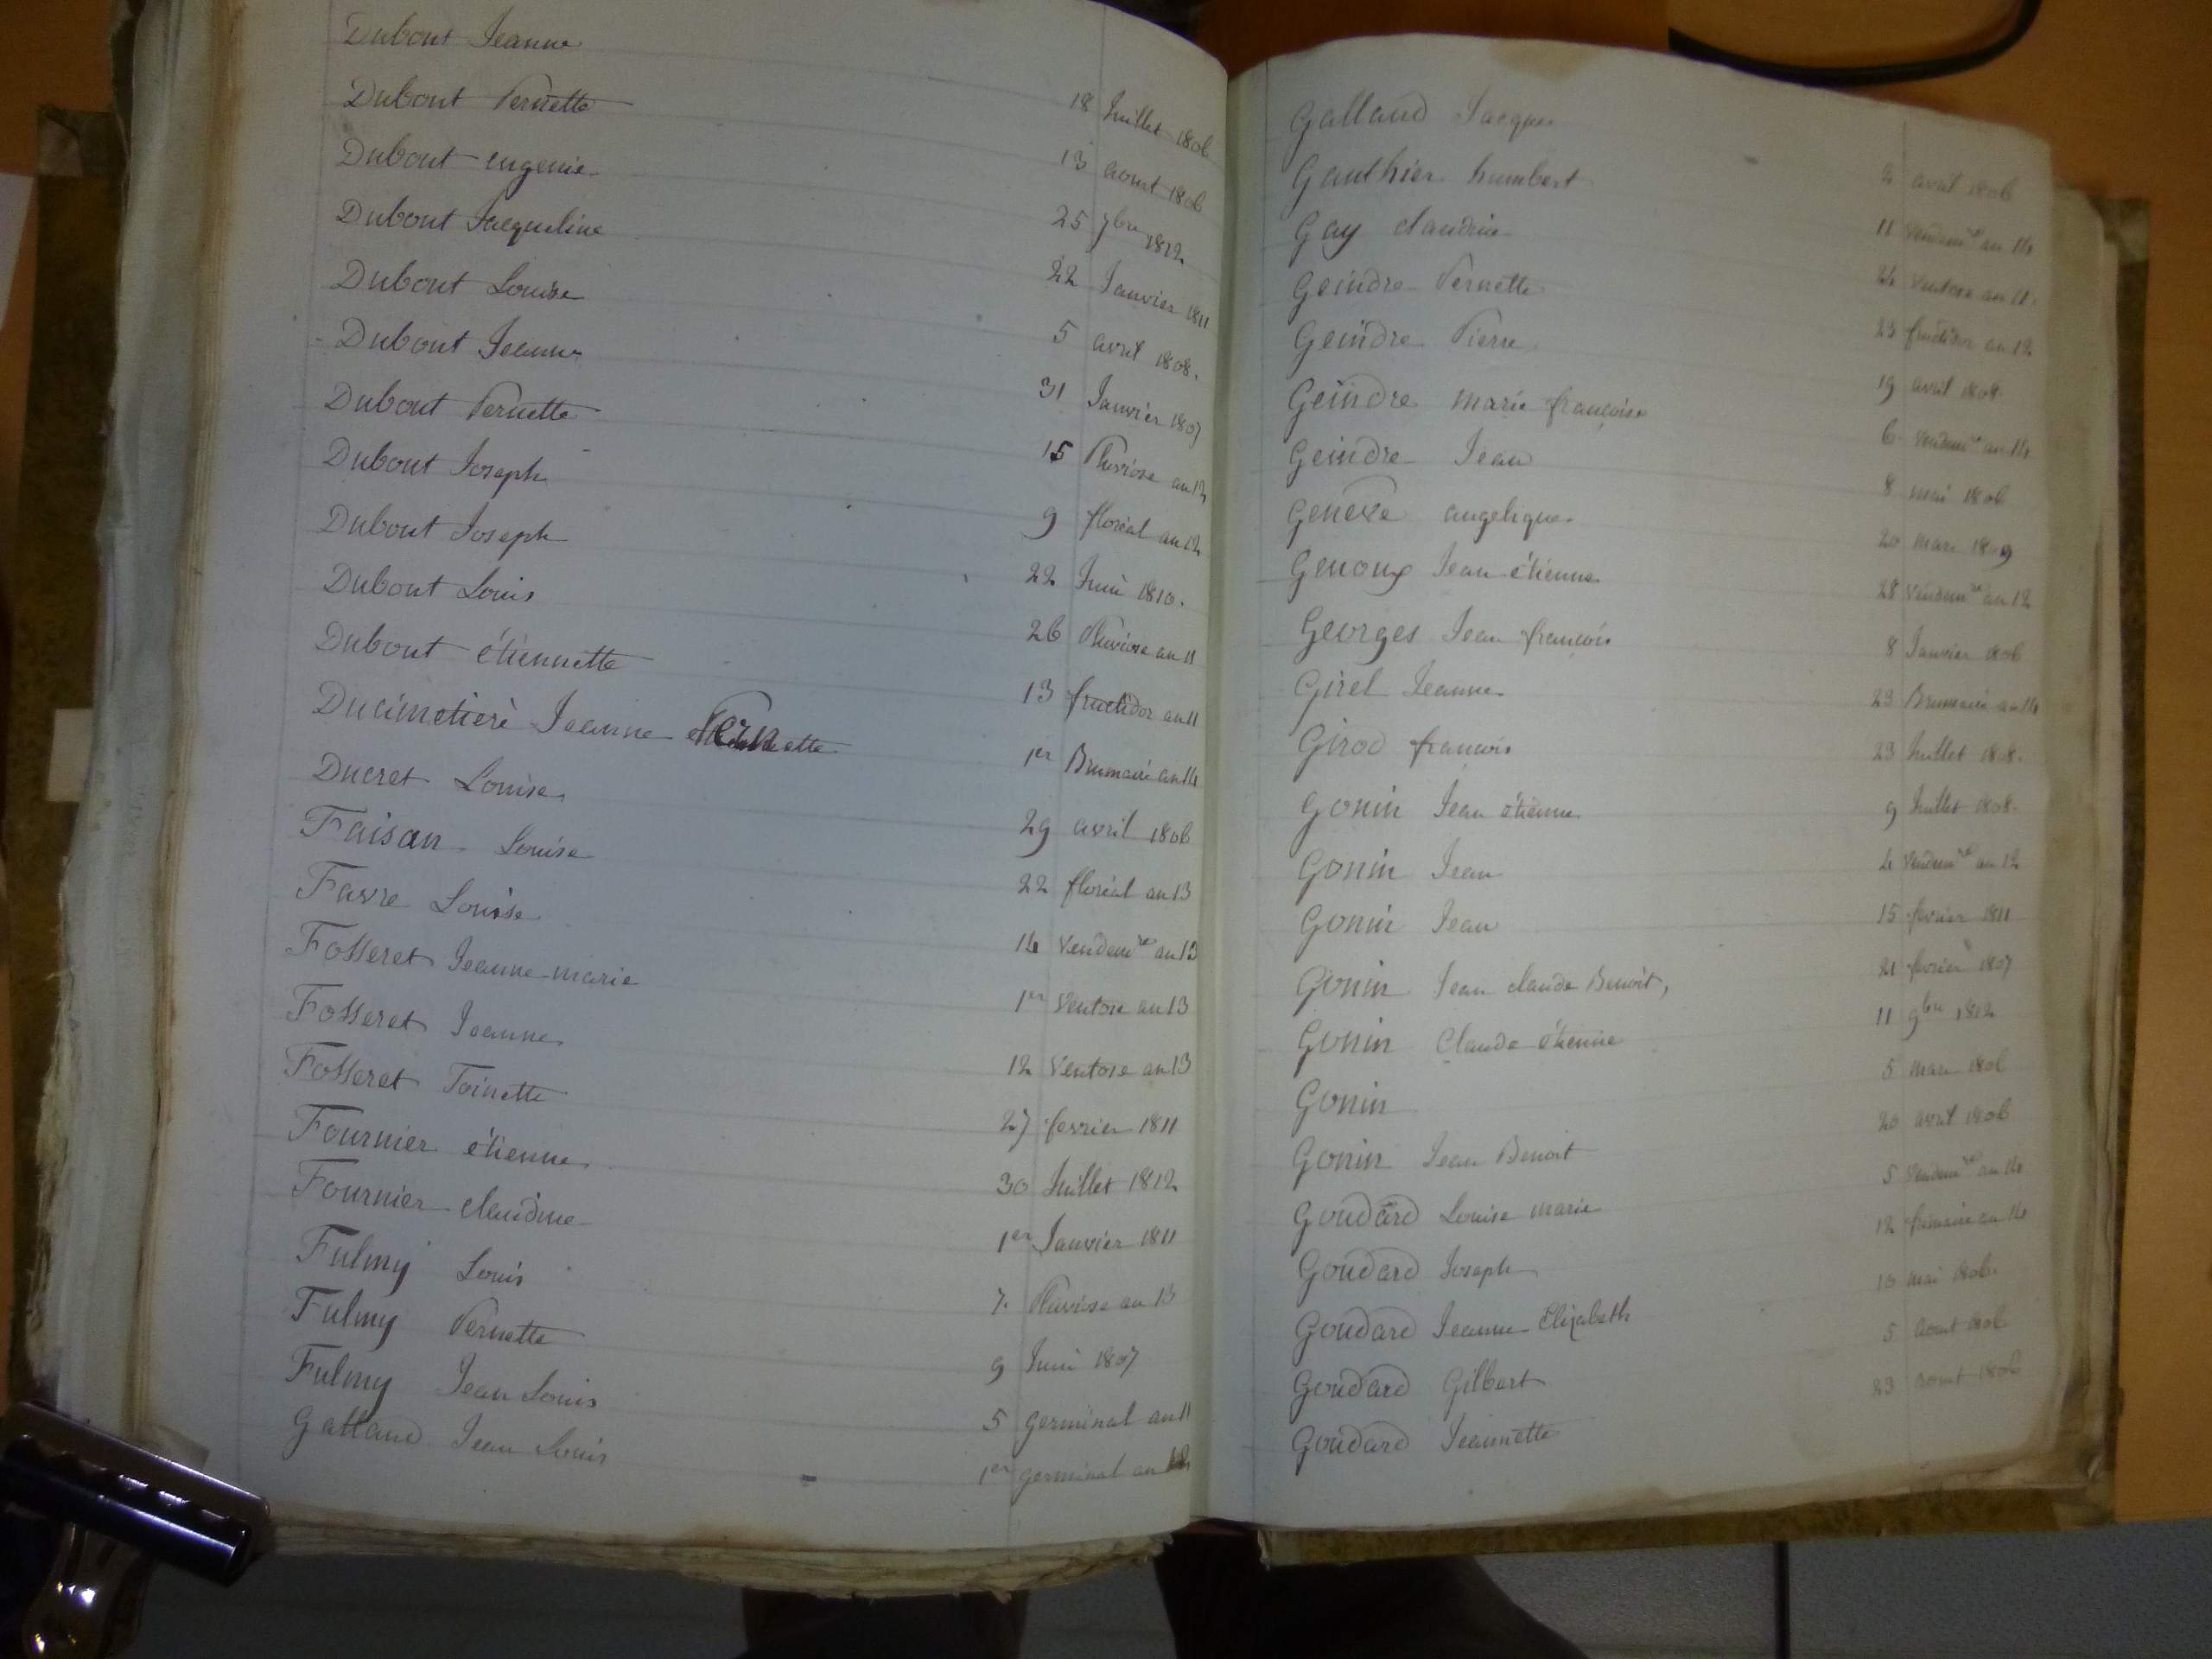 Dubout Jeanne 18 Juillet 1806
Dubout Pernette 13 aout 1806
Dubout eugenie 25 7bre 1812
Dubout Jacqueline 22 Janvier 1811
Dubout Louise 5 avril 1808.
Dubout Jeanne 31 Janvier 1807
Dubout Pernette 15 Pluviose an 12
Dubout Joseph 9 floréal an 12
Dubout Joseph 22 Juin 1810.
Dubout Louis 26 Pluviose an 11
Dubout étiennette 13 fructidor an 11
Ducimetierè Jeanne Pernette 1er Brumaire an 14
Ducret Louise 29 avril 1806
Faisan Louise 22 floréal an 13
Favre Louise 14 Vendemre an 13
Fosseret Jeanne-marie 1er Ventose an 13
Fosseret Jeanne 12 Ventose an 13
Fosseret Toinette 27 fevrier 1811
Fournier étienne 30 Juillet 1812
Fournier claudine 1er Janvier 1811
Fulmy Louis 7. Pluviose an 13
Fulmy Pernette 9 Juin 1807
Fulmy Jean Louis 5 germinal an 11
Galland Jean Louis 1er germinal an 12
Galland Jacques 2 avril 1806
Gauthier humbert 11 Vendemre an 14
Gay claudine 24 Ventose an 11.
Geindre Pernette 23 fructidor an 12
Geindre Pierre 19 avril 1808
Geindre marie françoise 6. Vendemre an 14
Geindre Jean 8 mai 1806
Geneve angelique 20 mars 1809
Genoux Jean étienne 28 Vendemre an 12
Georges Jean françois 8 Janvier 1806
Girel Jeanne 23 Brumaire an 14
Girod françois 23 Juillet 1808.
Gonin Jean étienne 9 Juillet 1808.
Gonin Jean 4 Vendemre an 12
Gonin Jean 15 fevrier 1811
Gonin Jean claude Benoit, 21 fevrier 1807
Gonin Claude étienne 11 9bre 1812
Gonin 5 mars 1806
Gonin Jean Benoit 20 avril 1806
Goudard Louise marie 5 Vendemre an 14
Goudard Joseph 12 frimaire an 14
Goudard Jeanne Elizabeth 10 mai 1806.
Goudard Gilbert 5 aout 1806
Goudard Jeannette 23 aout 1806